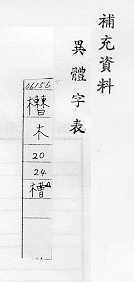 補充資料
異體字表
06156
木
20
24
槽